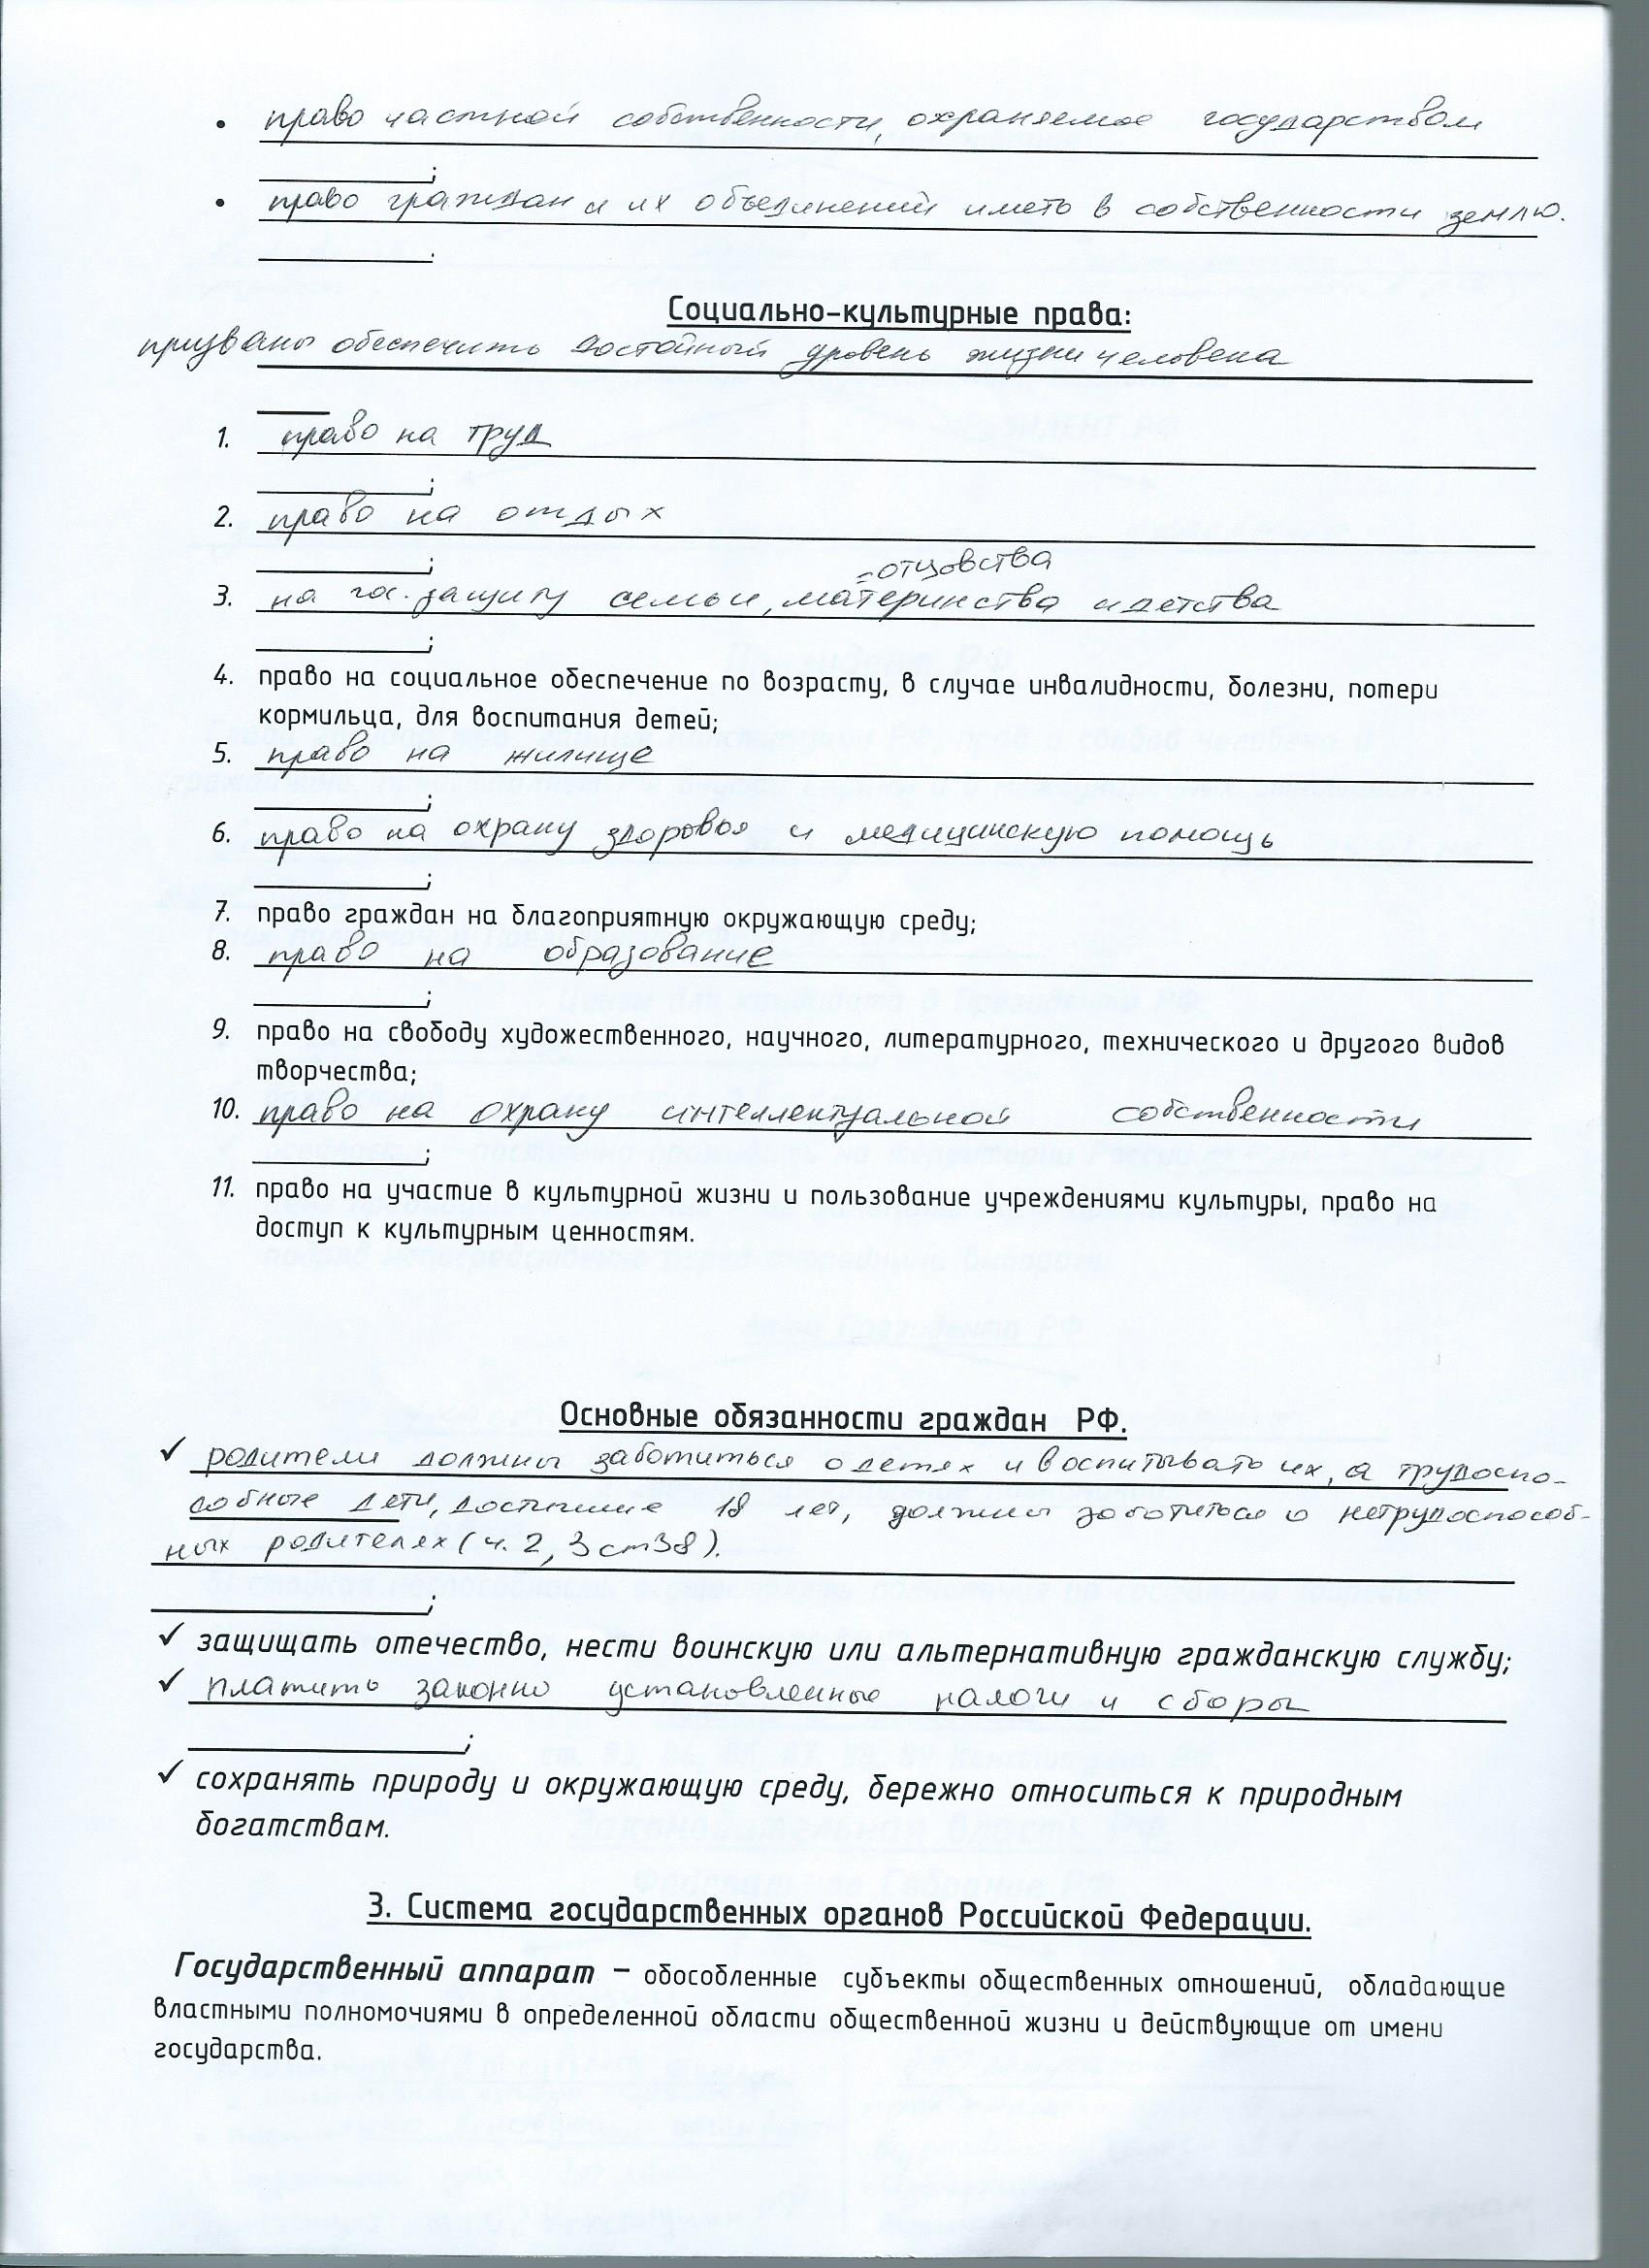 • право частной собственности, охраняемое государством
;
• право граждан и их объединений иметь в собственности землю.
.
Социально-культурные права:
призваны обеспечить достойный уровень жизни человека
1. право на труд
;
2. право на отдых
;
- отцовства
3. на гос. защиту семьи, материнства и детства
;
4. право на социальное обеспечение по возрасту, в случае инвалидности, болезни, потери
кормильца, для воспитания детей;
5. право на жилище
;
6. право на охрану здоровья и медицинскую помощь
;
7. право граждан на благоприятную окружающую среду;
8. право на образование
;
9. право на свободу художественного, научного, литературного, технического и другого видов
творчества;
10. право на охрану интеллектуальной собственности
;
11. право на участие в культурной жизни и пользование учреждениями культуры, право на
доступ к культурным ценностям.
Основные обязанности граждан РФ.
✓ родители должны заботиться о детях и воспитывать их, а трудоспо-
собные дети, достигшие 18 лет, должны заботиться о нетрудоспособ-
ных родителях (ч. 2, 3 ст 38).
;
✓ защищать отечество, нести воинскую или альтернативную гражданскую службу;
✓ платить законно установленные налоги и сборы
;
✓ сохранять природу и окружающую среду, бережно относиться к природным
богатствам.
3. Система государственных органов Российской Федерации.
Государственный аппарат – обособленные субъекты общественных отношений, обладающие
властными полномочиями в определенной области общественной жизни и действующие от имени
государства.